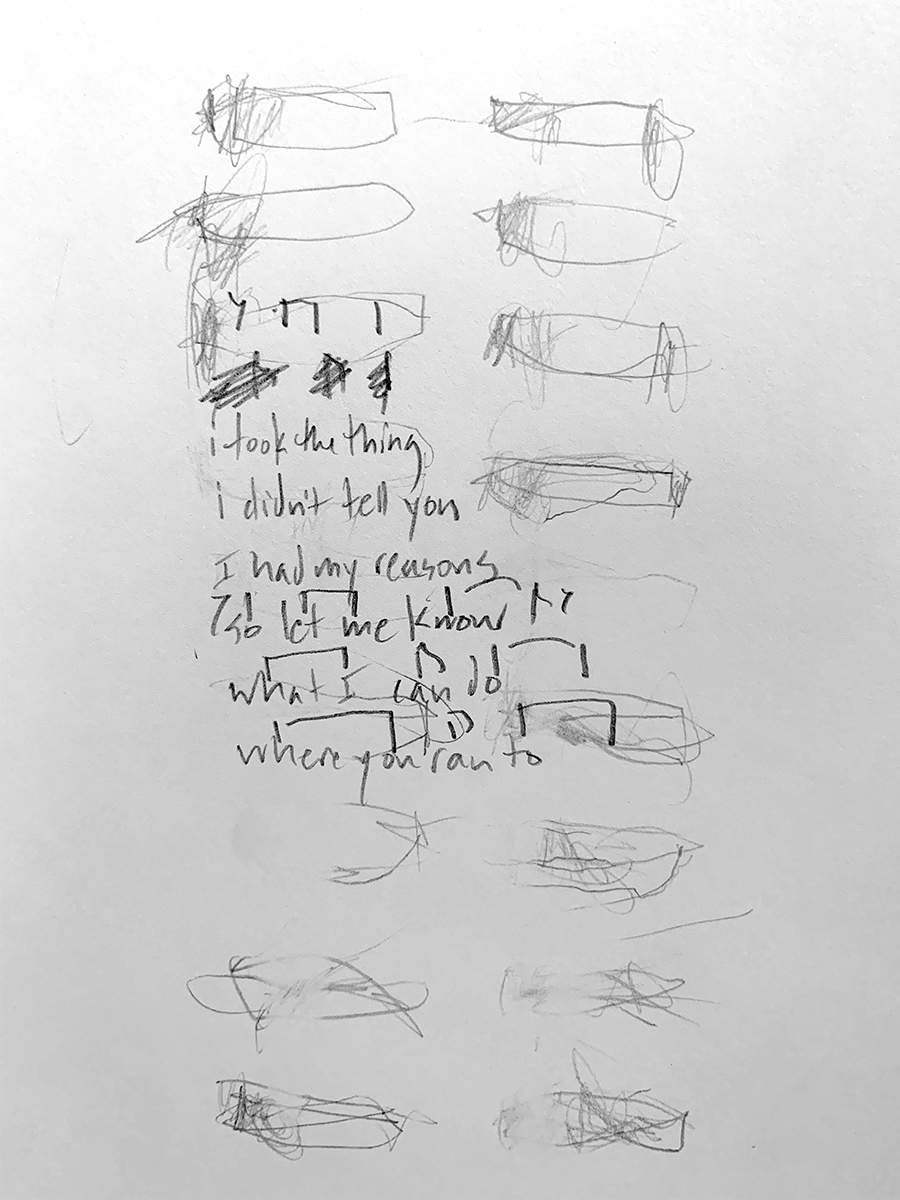 i took the thing
i didn't tell you
I had my reasons
so let me know
what I can do
where you ran to